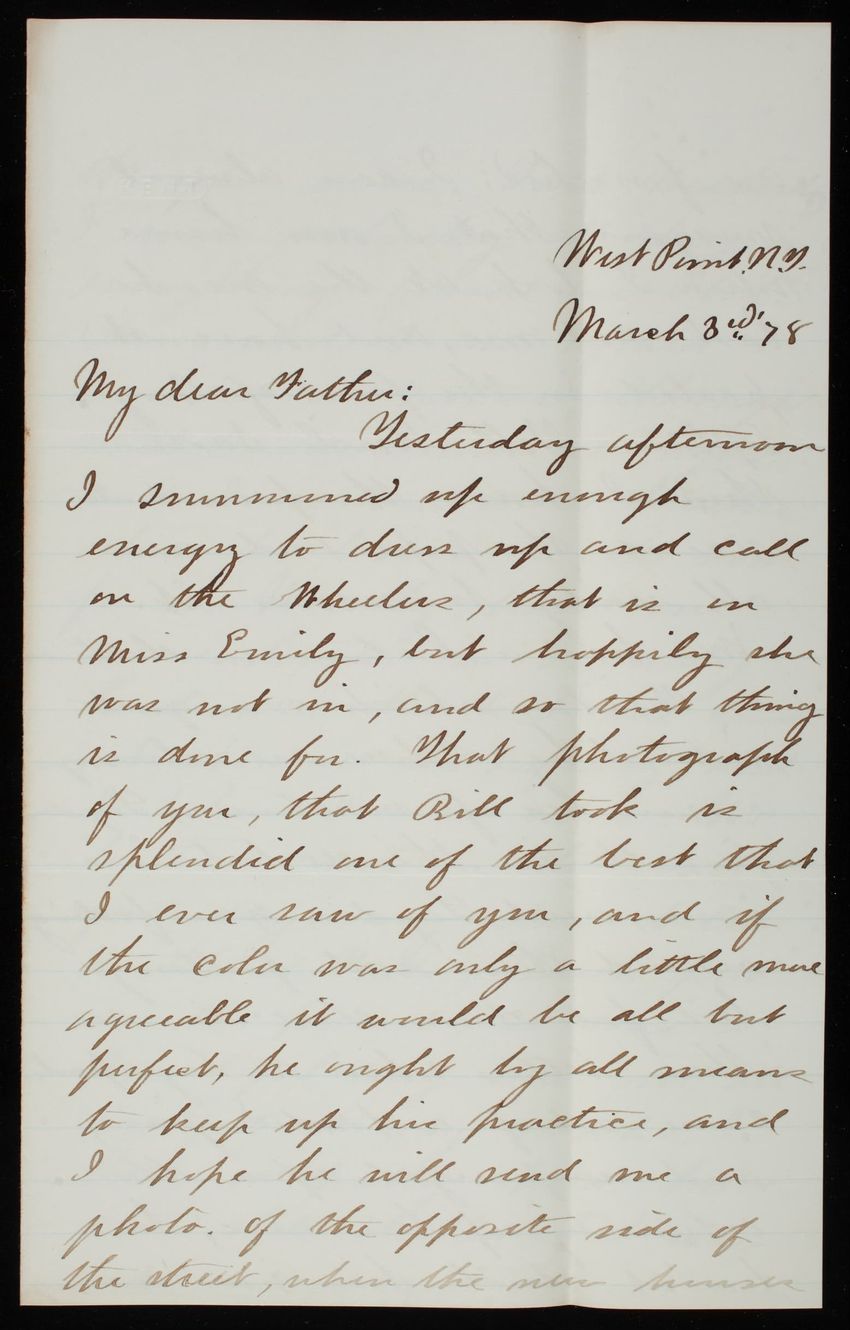 West Point, N.Y.
March 3rd, '78
My dear Father:
Yesterday afternoon
I summoned up enough
energy to dress up and call
on the Wheelers, that is on
Miss Emily, but happily she
was not in, and so that thing
is done for. That photograph
of you, that Bill took is
splendid one of the best that
I ever saw of you, and if
the color was only a little more
agreeable it would be all but
perfect, he ought by all means
to keep up his practice, and
I hope he will send me a
photo. of the opposite side of
the street, when the new houses